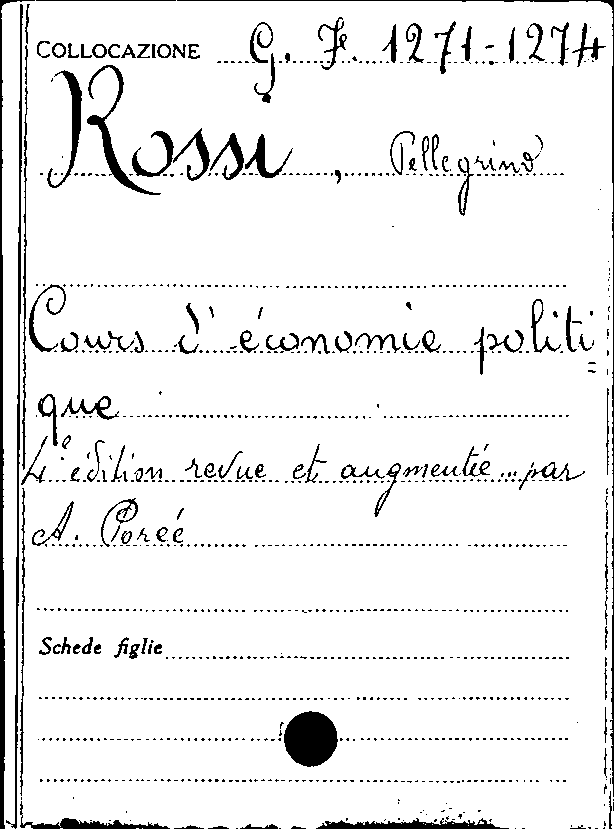 COLLOCAZIONE G. F. 1271-1274
Rossi, Pellegrino
Cours d'économie politi=
que
4e édition revue et augmentée... par
A. Porée
Schede figlie